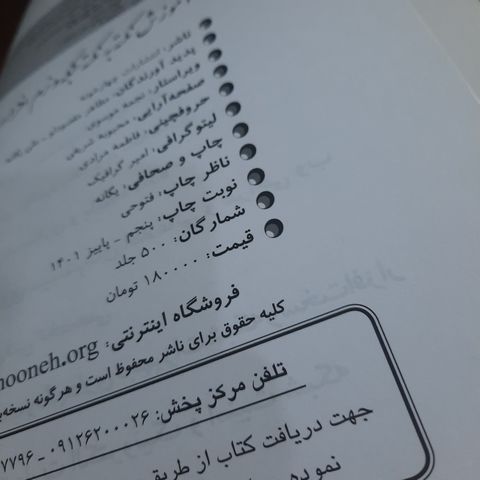 ناشر: انتشارات چهارخونه
پدید آورندگان: طاهر
ویراستار: نجمه موسوی
صفحه‌آرایی: محبوبه شریفی
حروفچینی: فاطمه مرادی
لیتوگرافی: امیر گرافیک
چاپ و صحافی: یگانه
ناظر چاپ: فتوحی
نوبت چاپ: پنجم ـ پاییز ۱۴۰۱
شمارگان: ۵۰۰ جلد
قیمت: ۱۸۰۰۰۰ تومان
فروشگاه اینترنتی: nooneh.org
کلیه حقوق برای ناشر محفوظ است و هرگونه نسخه‌
تلفن مرکز پخش: ۰۹۱۲۶۲۰۰۰۲۶ ـ ۷۷۹۶
جهت دریافت کتاب از طریق
نموده